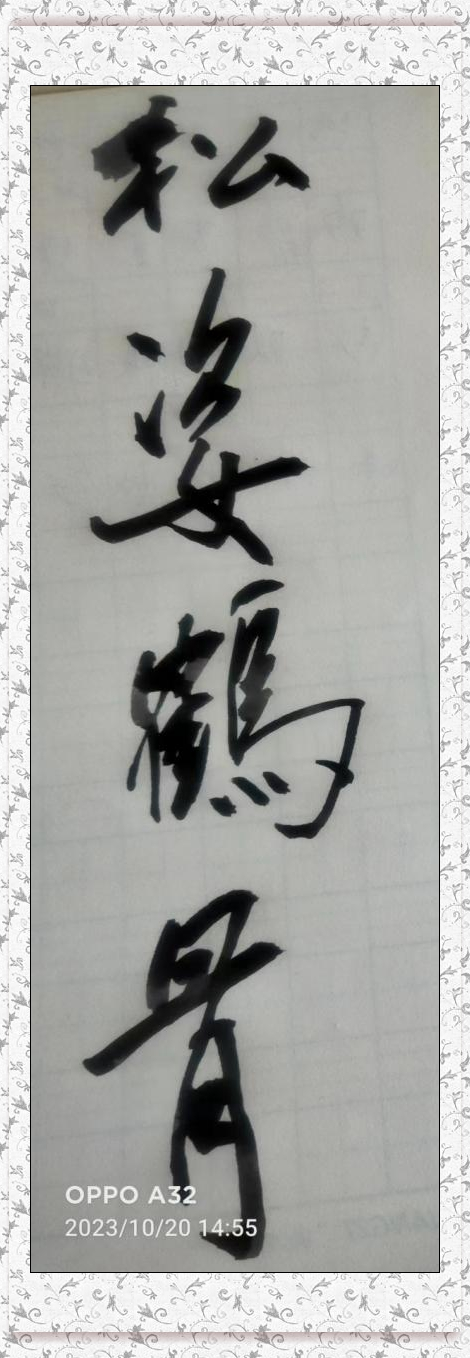 松姿鶴骨
OPPO A32
2023/10/20 14:55